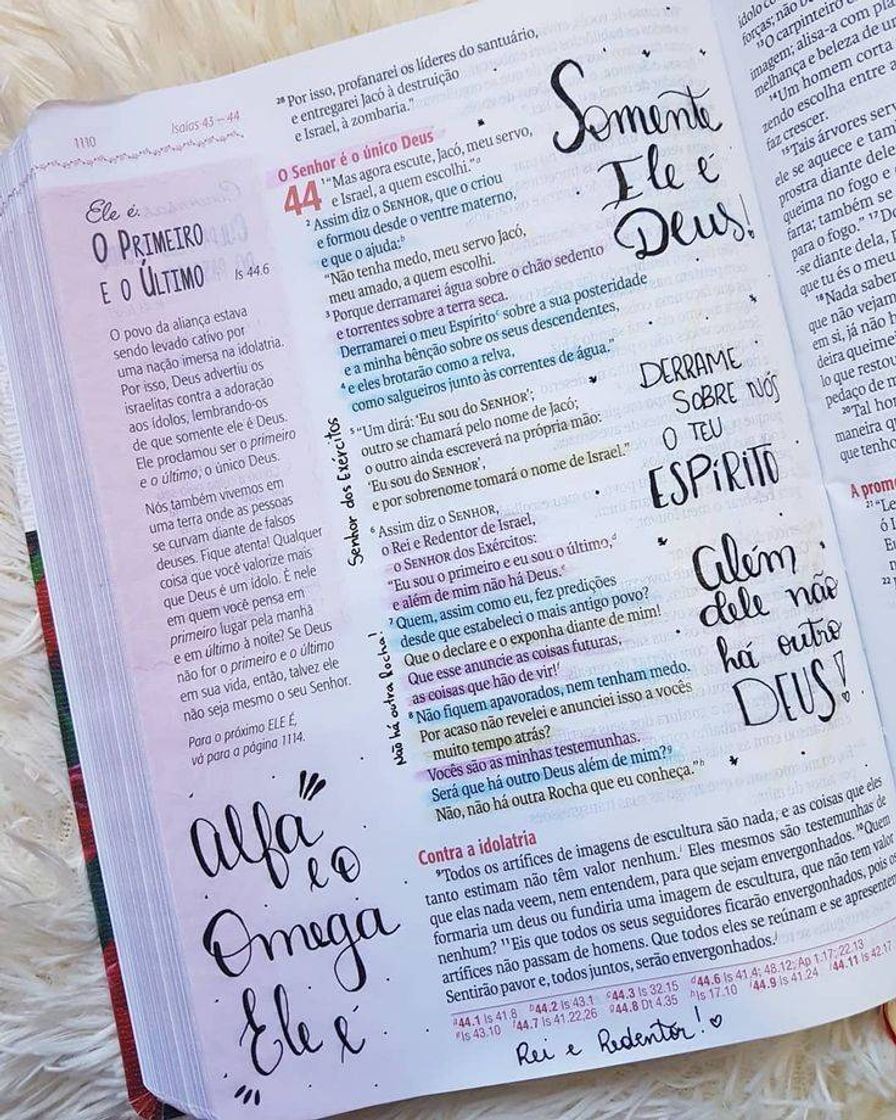 1110
Isaías 43 – 44
Ele é:
O PRIMEIRO
E O ÚLTIMO
Is 44.6
O povo da aliança estava
sendo levado cativo por
uma nação imersa na idolatria.
Por isso, Deus advertiu os
israelitas contra a adoração
aos ídolos, lembrando-os
de que somente ele é Deus.
Ele proclamou ser o primeiro
e o último, o único Deus.
Nós também vivemos em
uma terra onde as pessoas
se curvam diante de falsos
deuses. Fique atenta! Qualquer
coisa que você valorize mais
que Deus é um ídolo. É nele
em quem você pensa em
primeiro lugar pela manhã
e em último à noite? Se Deus
não for o primeiro e o último
em sua vida, então, talvez ele
não seja mesmo o seu Senhor.
Para o próximo ELE É,
vá para a página 1114.
Alfa
e o
Omega
Ele é
28 Por isso, profanarei os líderes do santuário,
e entregarei Jacó à destruição
e Israel, à zombaria.”
O Senhor é o único Deus
44 1 “Mas agora escute, Jacó, meu servo,
e Israel, a quem escolhi.” a
2 Assim diz o SENHOR, que o criou
e formou desde o ventre materno,
e que o ajuda: b
“Não tenha medo, meu servo Jacó,
meu amado, a quem escolhi.
3 Porque derramarei água sobre o chão sedento
e torrentes sobre a terra seca.
Derramarei o meu Espírito c sobre a sua posteridade
e a minha bênção sobre os seus descendentes,
4 e eles brotarão como a relva,
como salgueiros junto às correntes de água.”
5 “Um dirá: ‘Eu sou do SENHOR’;
outro se chamará pelo nome de Jacó;
o outro ainda escreverá na própria mão:
‘Eu sou do SENHOR’,
e por sobrenome tomará o nome de Israel.”
6 Assim diz o SENHOR,
o Rei e Redentor de Israel,
o SENHOR dos Exércitos:
“Eu sou o primeiro e eu sou o último, d
e além de mim não há Deus. e
7 Quem, assim como eu, fez predições
desde que estabeleci o mais antigo povo?
Que o declare e o exponha diante de mim!
Que esse anuncie as coisas futuras,
as coisas que hão de vir! f
8 Não fiquem apavorados, nem tenham medo.
Por acaso não revelei e anunciei isso a vocês
muito tempo atrás?
Vocês são as minhas testemunhas.
Será que há outro Deus além de mim? g
Não, não há outra Rocha que eu conheça.” h
Senhor dos Exércitos
Não há outra Rocha!
Somente
Ele é
Deus!
DERRAME
SOBRE NÓS
O TEU
ESPÍRITO
Além
dele não
há outro
DEUS!
Contra a idolatria
9 Todos os artífices de imagens de escultura são nada, e as coisas que eles
tanto estimam não têm valor nenhum. i Eles mesmos são testemunhas de
que elas nada veem, nem entendem, para que sejam envergonhados. 10 Quem
formaria um deus ou fundiria uma imagem de escultura, que não tem valor
nenhum? 11 Eis que todos os seus seguidores ficarão envergonhados, pois os
artífices não passam de homens. Que todos eles se reúnam e se apresentem
Sentirão pavor e, todos juntos, serão envergonhados. j
a 44.1 Is 41.8 b 44.2 Is 43.1 c 44.3 Is 32.15 d 44.6 Is 41.4; 48.12; Ap 1.17; 22.13
e Is 43.10 f 44.7 Is 41.22,26 g 44.8 Dt 4.35 h Is 17.10 i 44.9 Is 41.24 j 44.11 Is 42.17
Rei e Redentor!
ídolo co
forças; não b
13 O carpinteiro e
imagem; alisa-a com pla
melhança e beleza de u
14 Um homem corta
zendo escolha entre a
faz crescer.
15 Tais árvores ser
ele se aquece e tam
prostra diante dele
queima no fogo e
farta; também se
para o fogo.” 17
-se diante dela,
que tu és o meu
18 Nada sabe
que não vejam
em si, já não h
deira queime
lo que resto
pedaço de
20 Tal hor
maneira q
que tenh
A prom
21 “Le
ó I
Eu
n
22